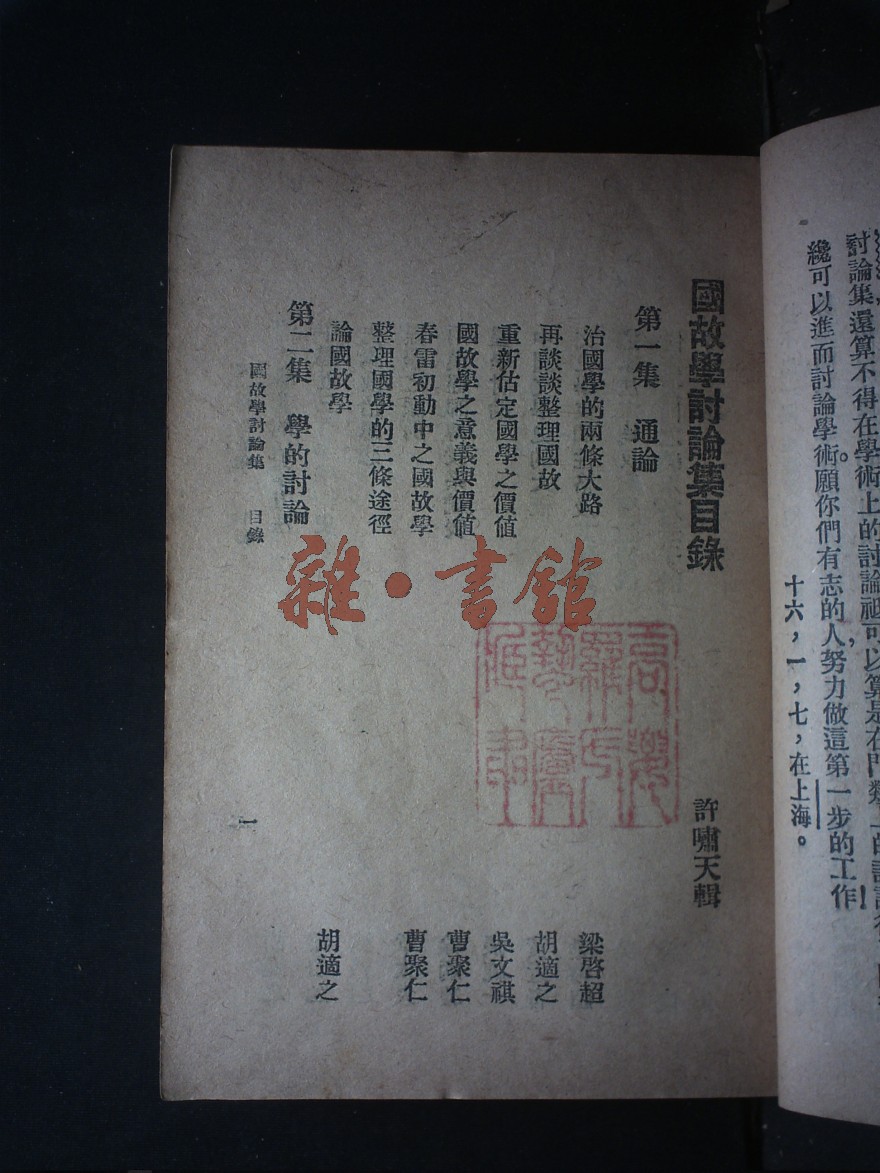 討論集還算不得在學術上的討論祇可以算是在門類
纔可以進而討論學術。願你們有志的人,努力做這第一步的工作!
十六,一,七,在上海。
國故學討論集目錄 許嘯天輯
第一集 通論
治國學的兩條大路 梁啓超
再談談整理國故 胡適之
重新估定國學之價值 吳文祺
國故學之意義與價值 曹聚仁
春雷初動中之國故學 曹聚仁
整理國學的三條途徑
論國故學 胡適之
第二集 學的討論
國故學討論集 目錄 一
雜·書館